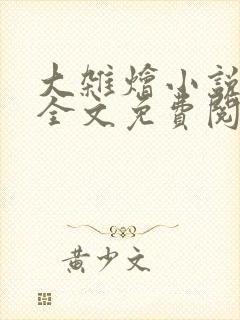 大雜燴小説
全文免費閱
黄少文